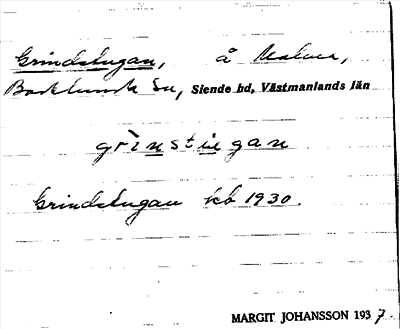 Grindstugan, å Malma,
Barkarö Sn, Siende hd, Västmanlands län
grìnstugan
Grindstugan kb 1930.
MARGIT JOHANSSON 1937.